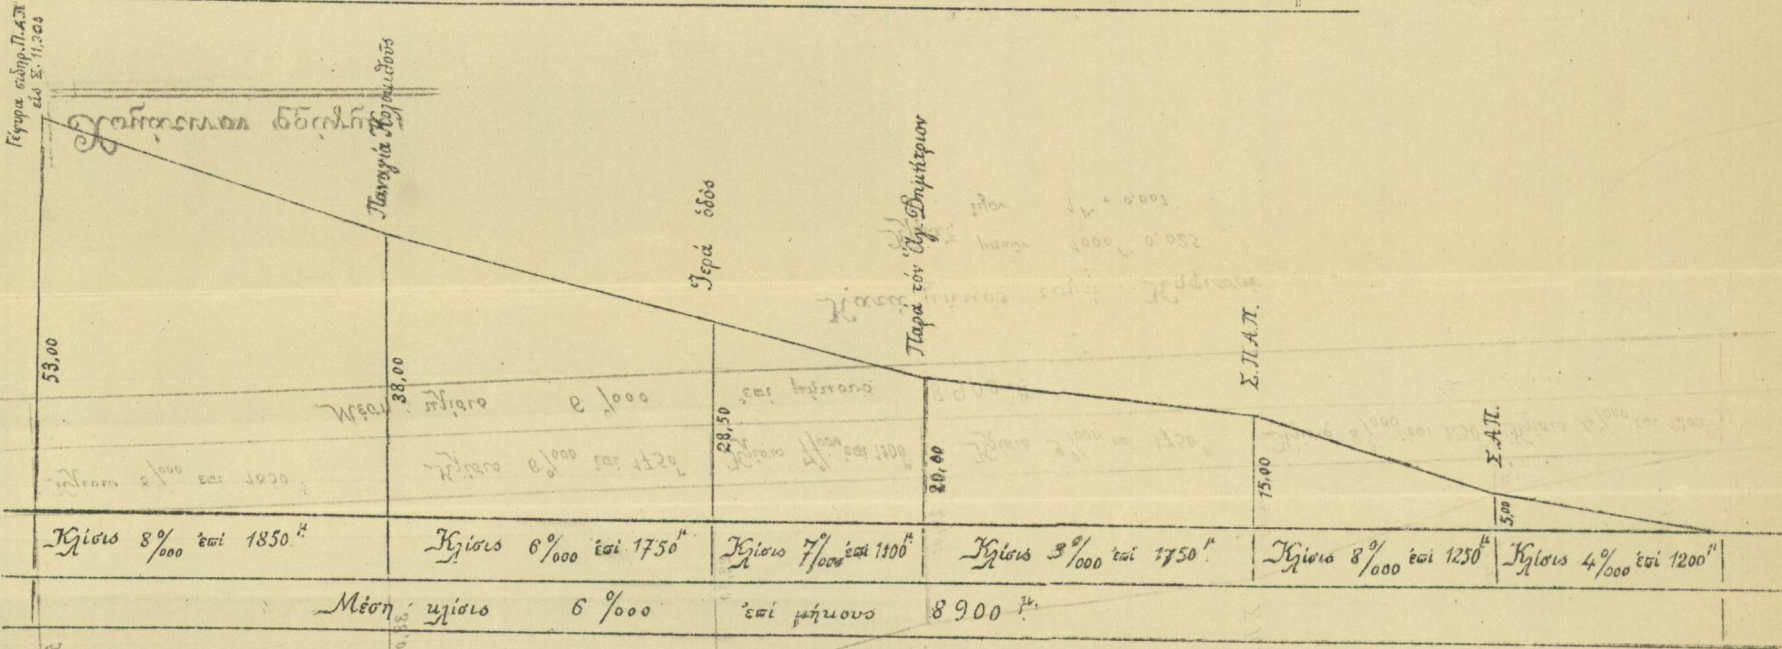 Γέφυρα σιδηρ. Π.Α.Π
εἰς Σ. 11,303
Παναγία Κολοκυθοῦς
Ἱερά ὁδός
Παρά τόν Ἅγ. Δημήτριον
Σ.Π.Α.Π.
Σ.Α.Π.
53,00
38,00
28,50
20,00
15,00
5,00
Κλίσις 8%000 ἐπί 1850 μ
Κλίσις 6%000 ἐπί 1750 μ
Κλίσις 7%000 ἐπί 1100 μ
Κλίσις 3%000 ἐπί 1750 μ
Κλίσις 8%000 ἐπί 1250 μ
Κλίσις 4%000 ἐπί 1200 μ
Μέση κλίσις 6%000 ἐπί μήκους 8900 μ.